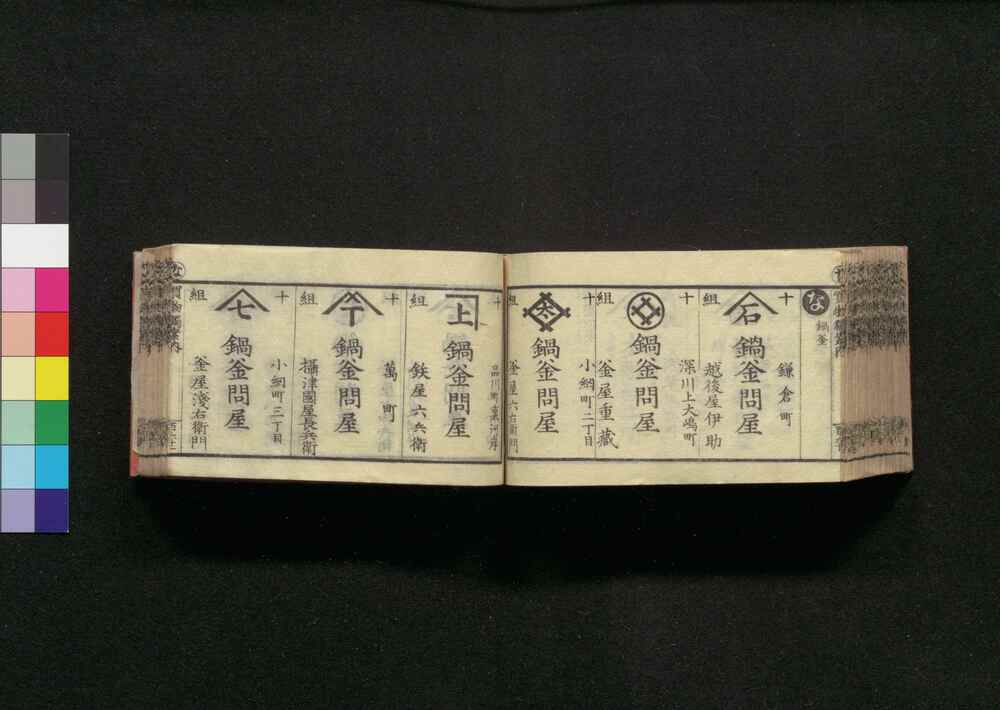 な
鍋釜
十組
鎌倉町
石
鍋釜問屋
越後屋伊助
十組
深川上大嶋町
鍋釜問屋
釜屋重蔵
十組
小網町二丁目
鍋釜問屋
釜屋六右衛門
十組
品川町裏河岸
上
鍋釜問屋
鉄屋六兵衛
十組
萬町
鍋釜問屋
攝津國屋長兵衛
十組
小網町三丁目
七
鍋釜問屋
釜屋淺右衛門